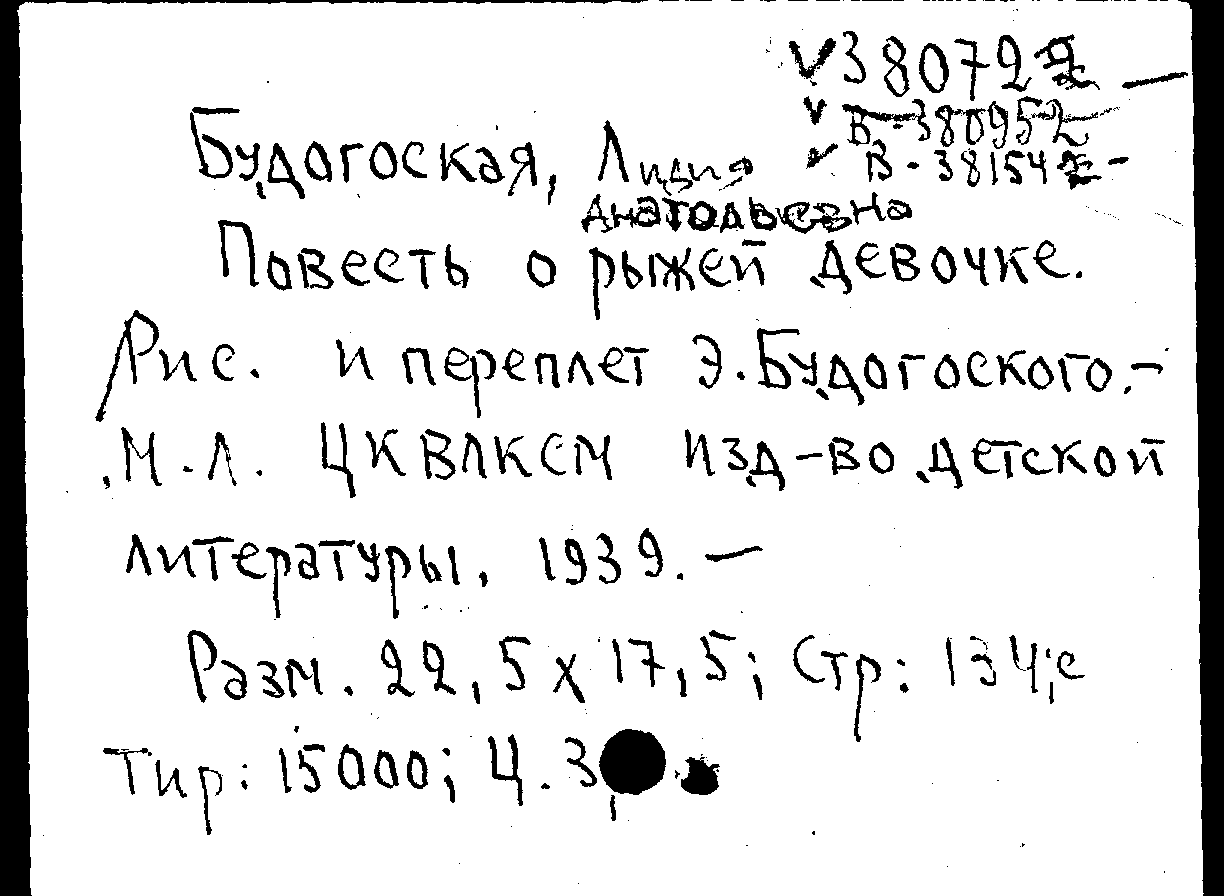 V 38072 —
V В-380952
V В-38154 -
Будогоская, Лидия
Анатольевна
Повесть о рыжей девочке.
Рис. и переплет Э.Будогоского.-
М.-Л. ЦК ВЛКСМ изд-во детской
литературы, 1939. —
Разм. 22,5 x 17,5; Стр: 134; с
Тир: 15000; Ц. 3,